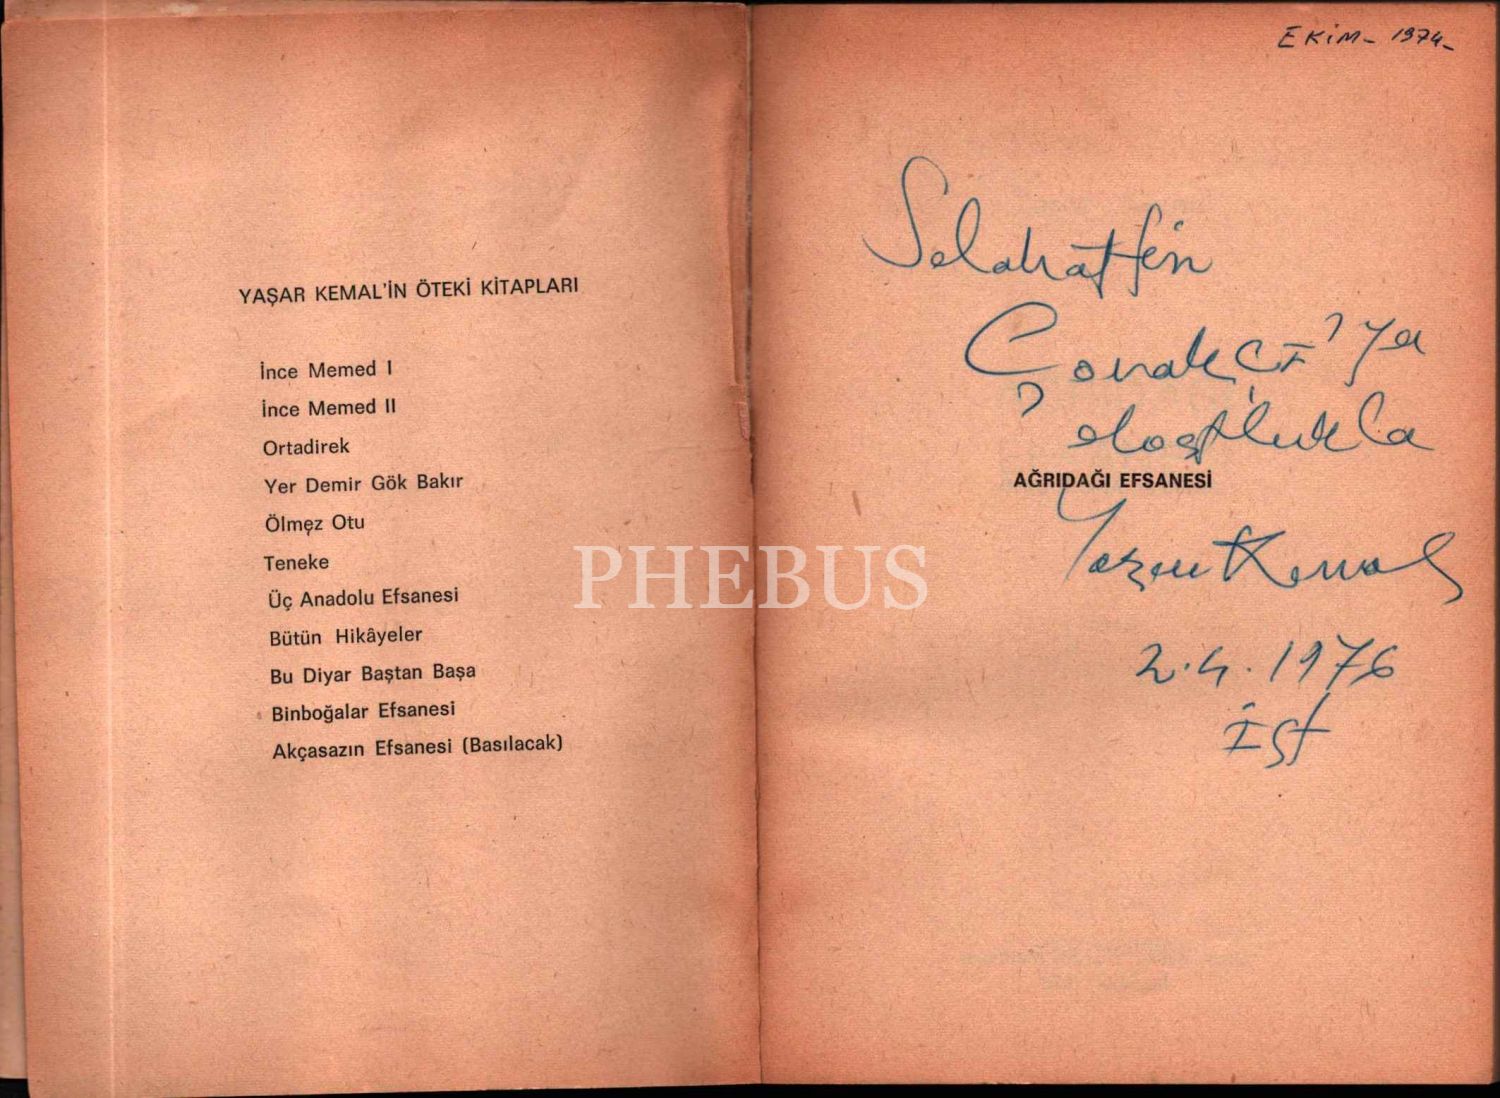 YAŞAR KEMAL'İN ÖTEKİ KİTAPLARI
İnce Memed I
İnce Memed II
Ortadirek
Yer Demir Gök Bakır
Ölmez Otu
Teneke
Üç Anadolu Efsanesi
Bütün Hikâyeler
Bu Diyar Baştan Başa
Binboğalar Efsanesi
Akçasazın Efsanesi (Basılacak)
PHEBUS
EKİM- 1974-
Selahattin
dostlukla
AĞRIDAĞI EFSANESİ
Yaşar Kemal
2.4.1976
İst